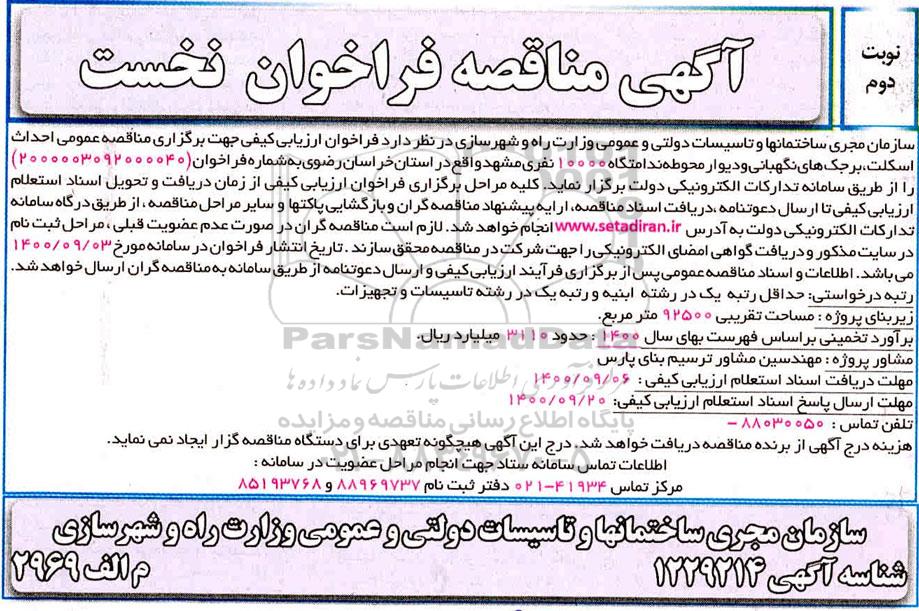 نوبت
دوم
آگهی مناقصه فراخوان نخست
سازمان مجری ساختمانها و تاسیسات دولتی و عمومی وزارت راه و شهرسازی در نظر دارد فراخوان ارزیابی کیفی جهت برگزاری مناقصه عمومی احداث
اسکلت، برجک‌های نگهبانی و دیوار محوطه ندامتگاه ۱۰۰۰۰ نفری مشهد واقع در استان خراسان رضوی به شماره فراخوان (۲۰۰۰۰۰۳۰۹۲۰۰۰۰۴۰)
را از طریق سامانه تدارکات الکترونیکی دولت برگزار نماید. کلیه مراحل برگزاری فراخوان ارزیابی کیفی از زمان دریافت و تحویل اسناد استعلام
ارزیابی کیفی تا ارسال دعوتنامه، دریافت اسناد مناقصه، ارایه پیشنهاد مناقصه گران و بازگشایی پاکتها و سایر مراحل مناقصه، از طریق درگاه سامانه
تدارکات الکترونیکی دولت به آدرس www.setadiran.ir انجام خواهد شد. لازم است مناقصه گران در صورت عدم عضویت قبلی، مراحل ثبت نام
در سایت مذکور و دریافت گواهی امضای الکترونیکی را جهت شرکت در مناقصه محقق سازند. تاریخ انتشار فراخوان در سامانه مورخ ۱۴۰۰/۰۹/۰۳
می باشد. اطلاعات و اسناد مناقصه عمومی پس از برگزاری فرآیند ارزیابی کیفی و ارسال دعوتنامه از طریق سامانه به مناقصه گران ارسال خواهد شد.
رتبه درخواستی: حداقل رتبه یک در رشته ابنیه و رتبه یک در رشته تاسیسات و تجهیزات.
زیربنای پروژه: مساحت تقریبی ۹۲۵۰۰ متر مربع.
برآورد تخمینی براساس فهرست بهای سال ۱۴۰۰: حدود ۳۱۱۰ میلیارد ریال.
مشاور پروژه: مهندسین مشاور ترسیم بنای پارس
مهلت دریافت اسناد استعلام ارزیابی کیفی: ۱۴۰۰/۰۹/۰۶
مهلت ارسال پاسخ اسناد استعلام ارزیابی کیفی: ۱۴۰۰/۰۹/۲۰
تلفن تماس: ۸۸۰۳۰۰۵۰ -
هزینه درج آگهی از برنده مناقصه دریافت خواهد شد. درج این آگهی هیچگونه تعهدی برای دستگاه مناقصه گزار ایجاد نمی نماید.
اطلاعات تماس سامانه ستاد جهت انجام مراحل عضویت در سامانه:
مرکز تماس ۴۱۹۳۴-۰۲۱ دفتر ثبت نام ۸۸۹۶۹۷۳۷ و ۸۵۱۹۳۷۶۸
سازمان مجری ساختمانها و تاسیسات دولتی و عمومی وزارت راه و شهرسازی
شناسه آگهی ۱۲۲۹۲۱۴
م الف ۲۹۶۹
ParsNamadData
پایگاه اطلاع رسانی مناقصه و مزایده